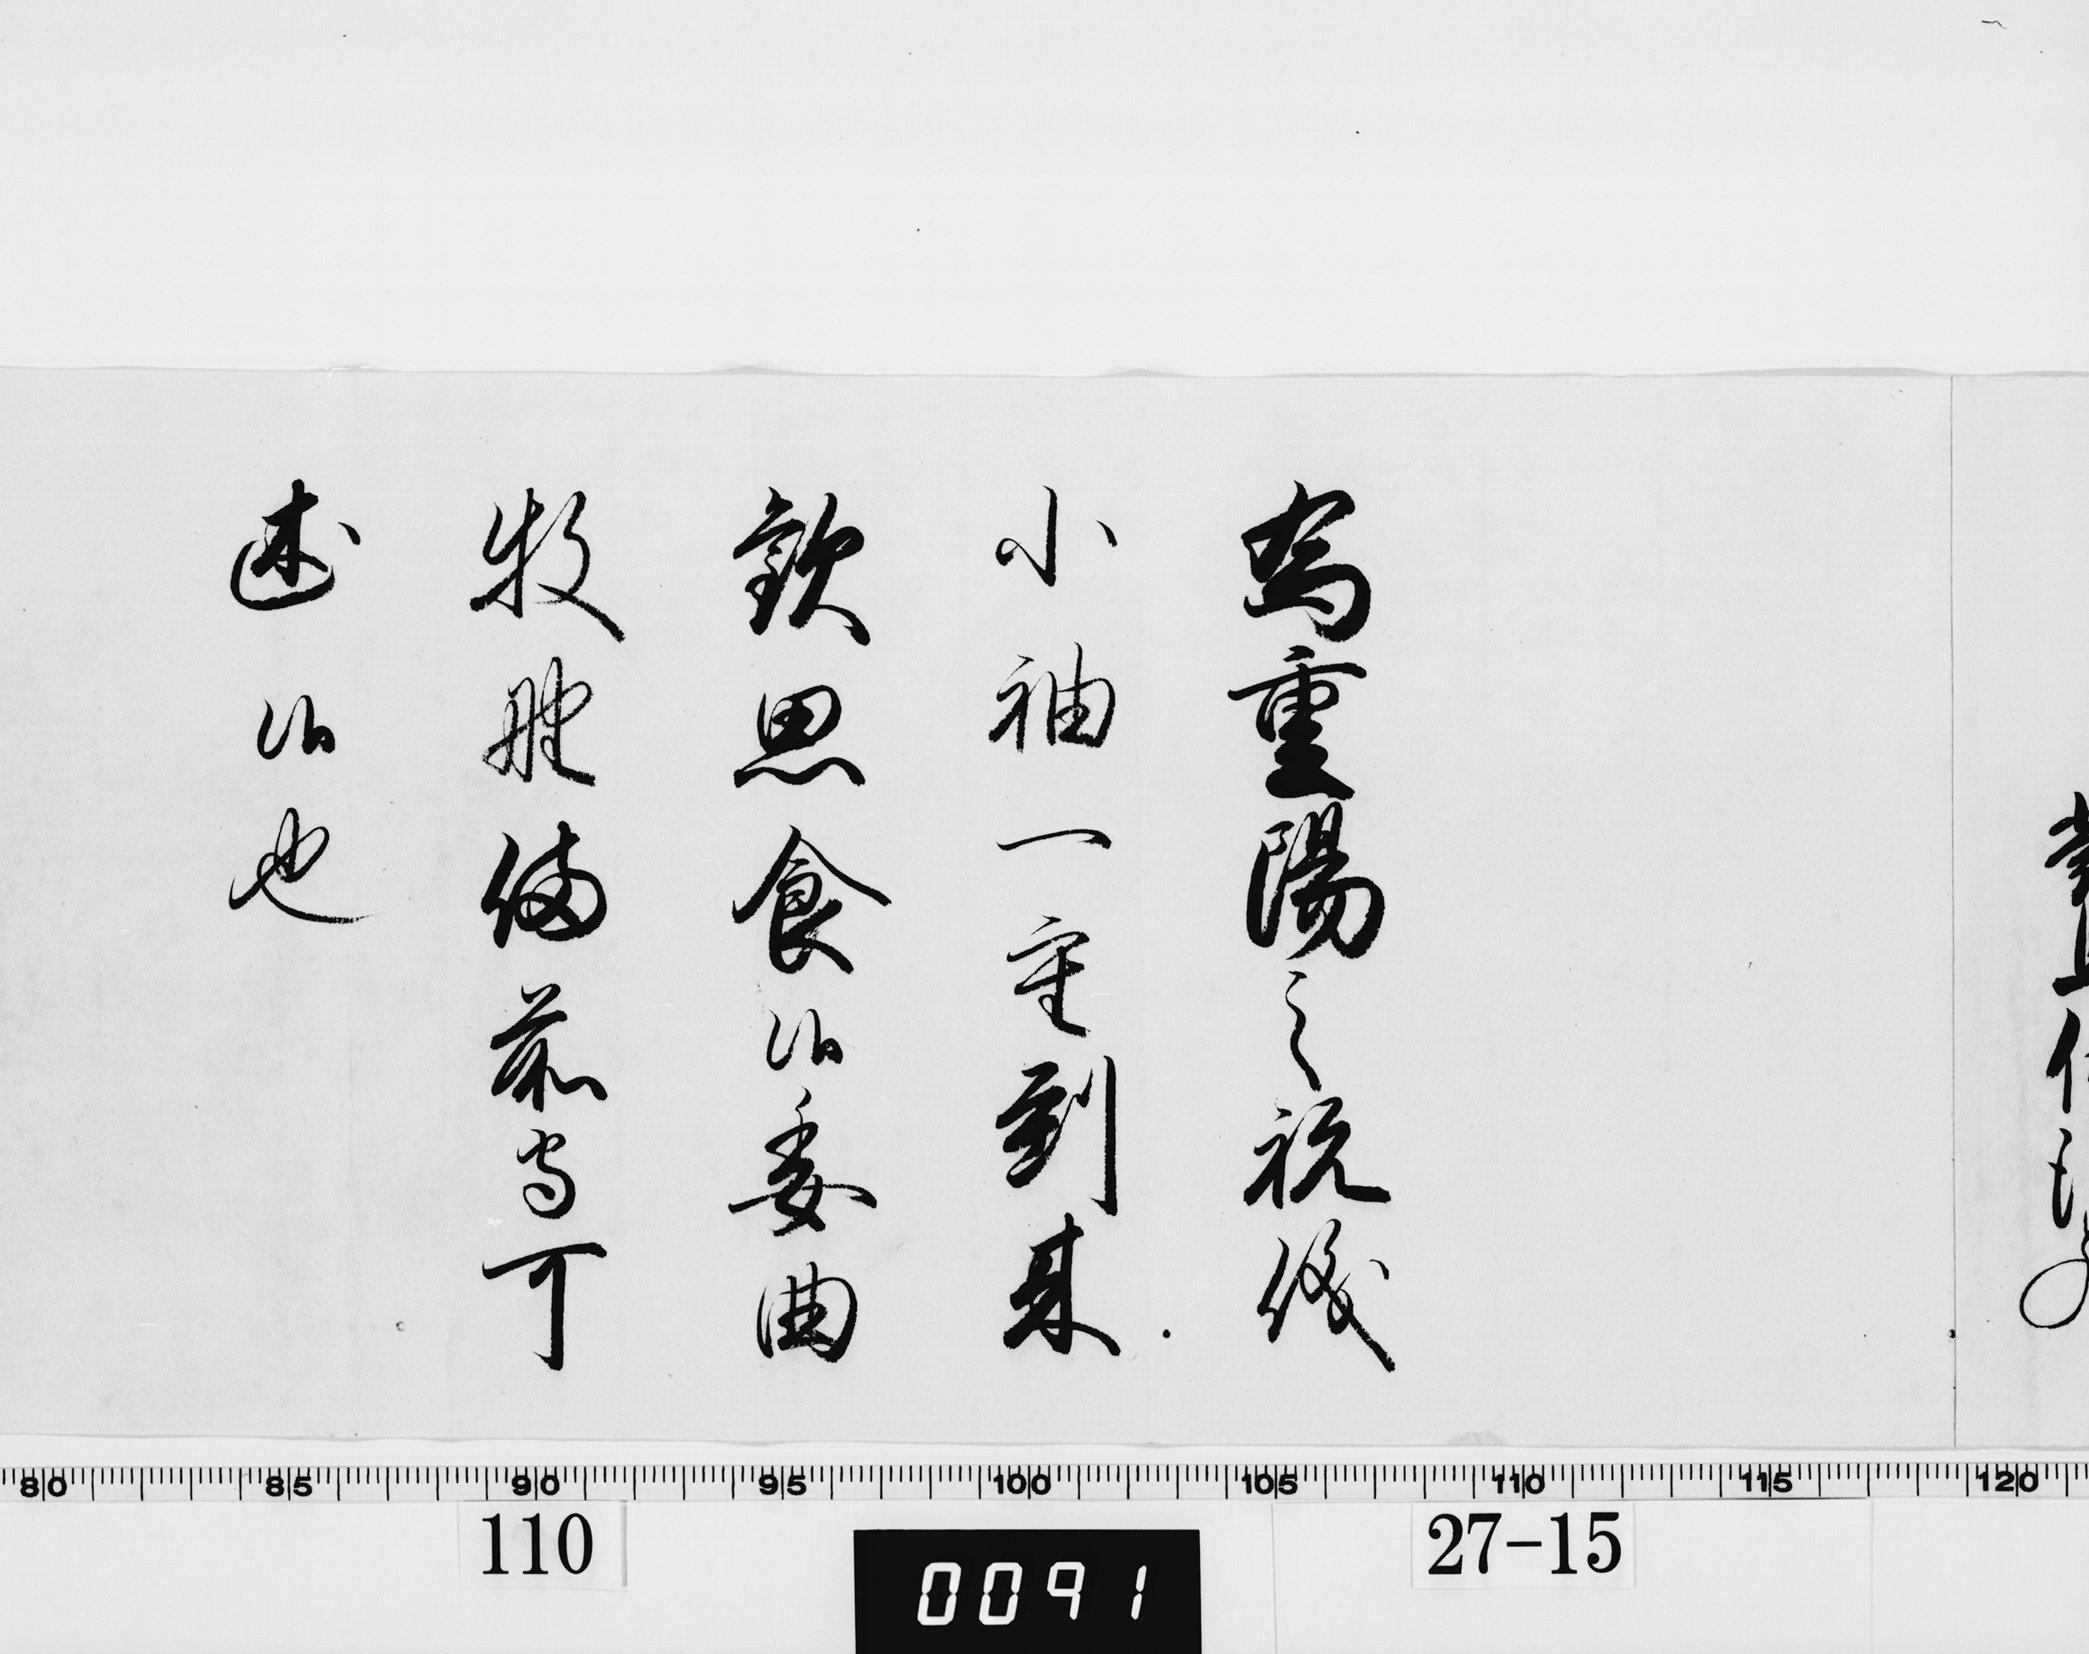 為重陽之祝儀
小袖一重到来
歓思食候委曲
牧野備前守可
述候也
80 85 90 95 100 105 110 115 120
110
0091
27-15